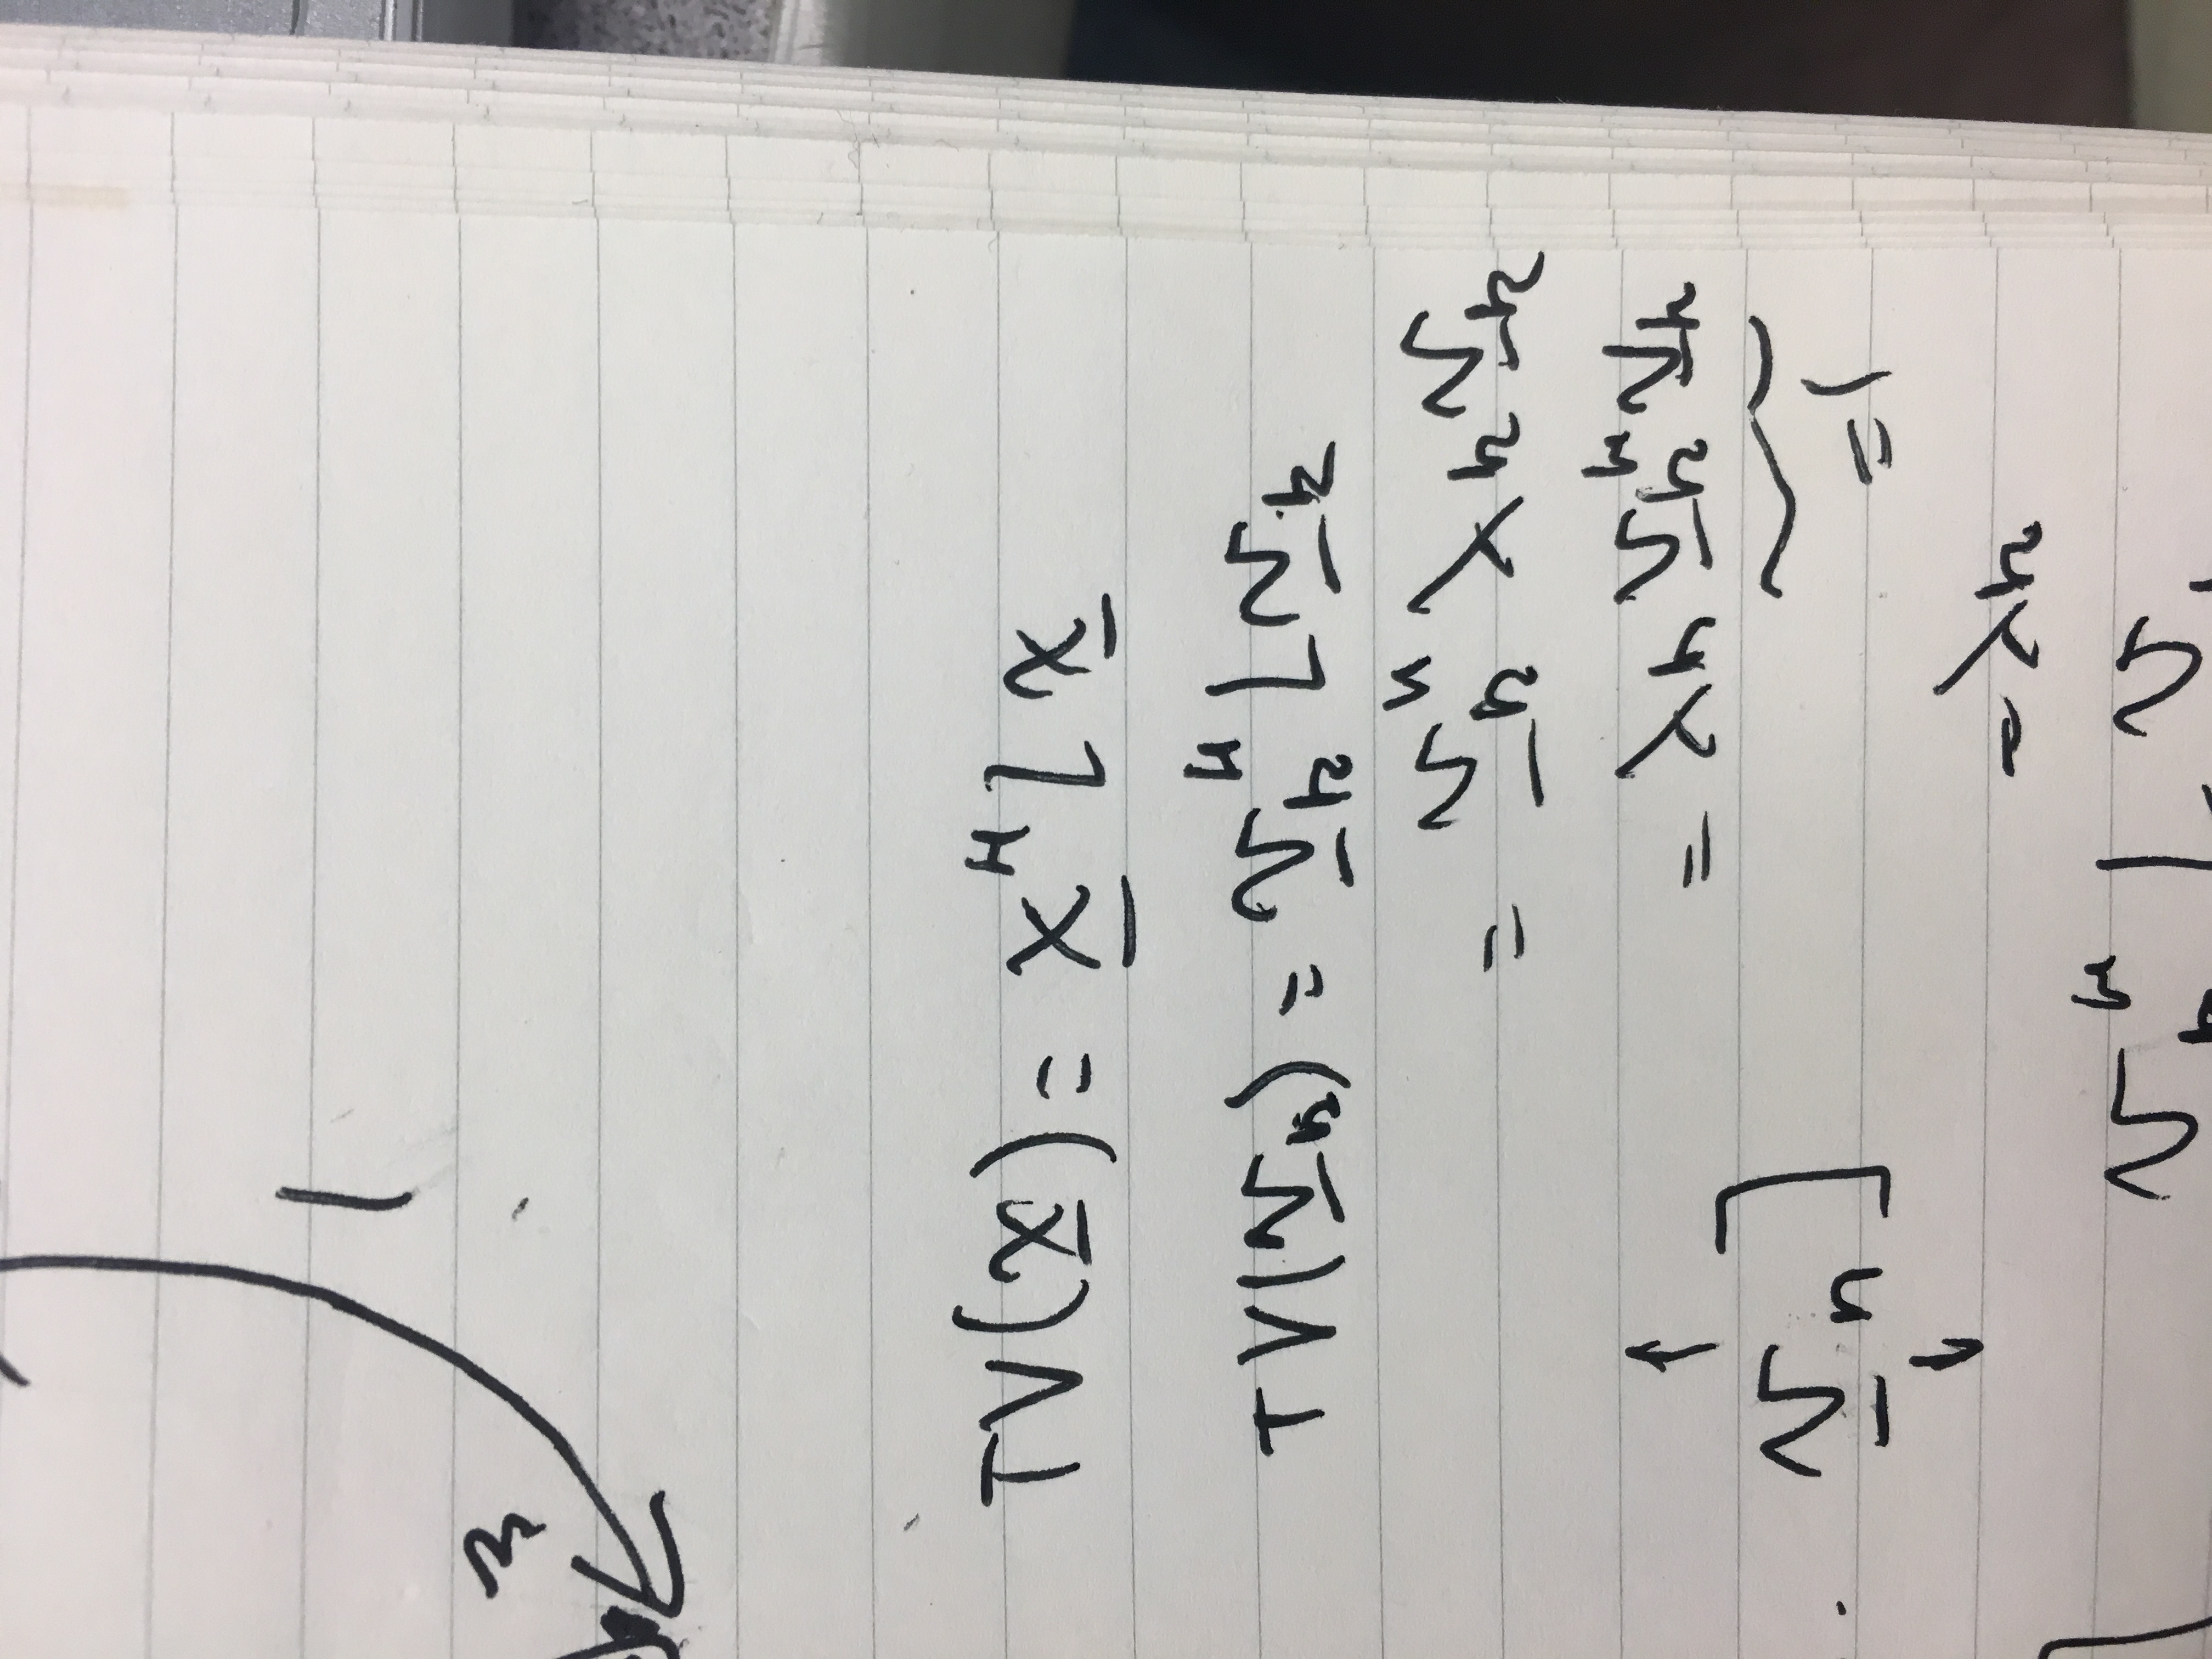 1
3
TV(x) = x^H L x
TV(v_k) = v_k^H L v_k
= v_k^H λ_k v_k
= λ_k v_k^H v_k
v_n ]
= 1
= λ_k
v_k^H L v